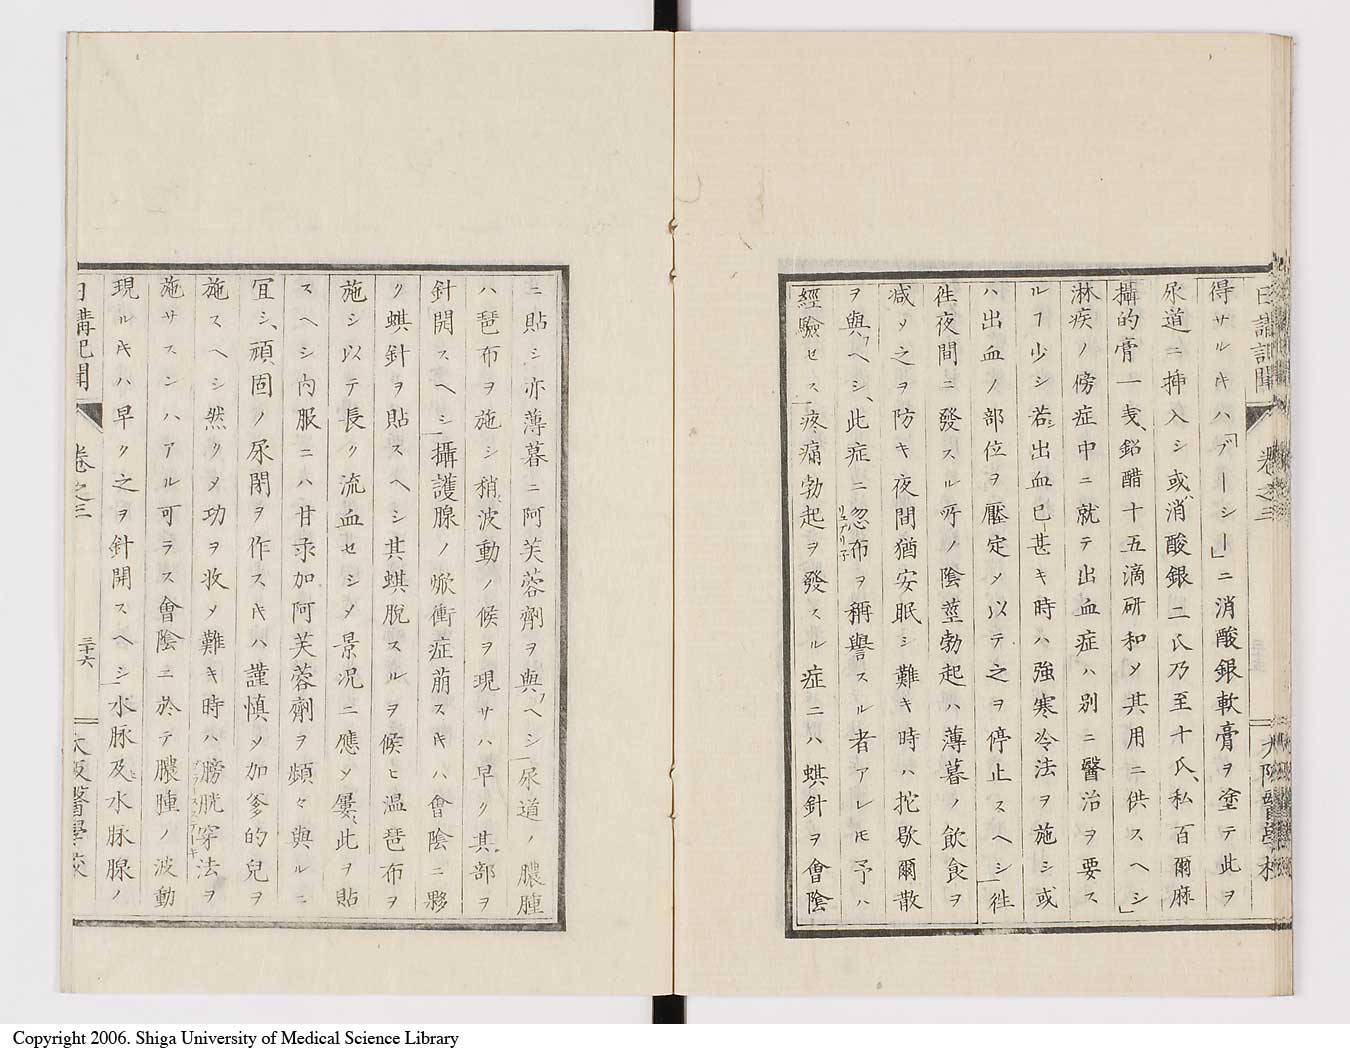 日講記聞 卷之三
得サルキハ「ブーシー」ニ消酸銀軟膏ヲ塗テ此ヲ
尿道ニ挿入シ或消酸銀二氏乃至十氏、私百爾麻
攝的膏一戔、鉛醋十五滴研和メ其用ニ供スヘシ」
淋疾ノ傍症中ニ就テ出血症ハ別ニ醫治ヲ要ス
ルフ少シ若シ出血已甚キ時ハ強寒冷法ヲ施シ或
ハ出血ノ部位ヲ壓定メ以テ之ヲ停止スヘシ」徃
徃夜間ニ發スル所ノ陰莖勃起ハ薄暮ノ飲食ヲ
减メ之ヲ防キ夜間猶安眠シ難キ時ハ抡歇爾散
ヲ與フヘシ、此症ニ忽布リュプリ子ヲ稱譽スル者アレ𪜈予ハ
經驗セス」疼痛勃起ヲ發スル症ニハ蜞針ヲ會陰
ニ貼シ亦薄暮ニ阿芙蓉劑ヲ與フヘシ」尿道ノ膿腫
ハ琶布ヲ施シ稍波動ノ候ヲ現サハ早ク其部ヲ
針開スヘシ」攝護腺ノ焮衝症萠スキハ會陰ニ夥
ク蜞針ヲ貼スヘシ其蜞脫スルヲ候ヒ温琶布ヲ
施シ以テ長ク流血セシメ景况ニ應メ屢此ヲ貼
スヘシ内服ニハ甘汞加阿芙蓉劑ヲ頻々與ルニ
冝シ、頑固ノ尿閉ヲ作スキハ謹慎メ加爹的兒ヲ
施スヘシ然クメ功ヲ收メ難キ時ハ膀胱穿法ヲ
施サスンハアル可ラス會陰ニ於テ膿腫ノ波動
現ルキハ早ク之ヲ針開スヘシ」水脉及ヒ水脉腺ノ
日講記聞 卷之三 三十六 大阪醫學校
Copyright 2006. Shiga University of Medical Science Library